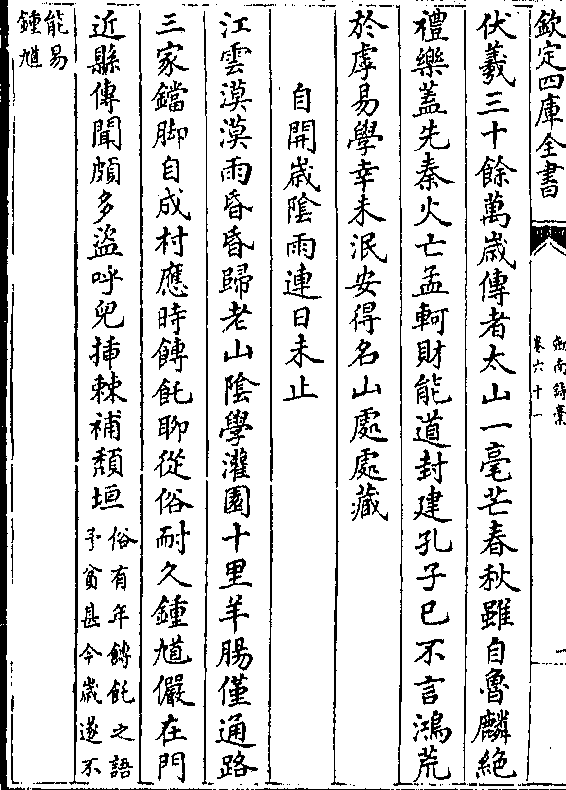 欽定四庫全書
劍南詩藁
卷六十一
一
伏羲三十餘萬歲傳者太山一毫芒春秋雖自魯麟絶
禮樂蓋先秦火亡孟軻財能道封建孔子已不言鴻荒
於虖易學幸未泯安得名山處處藏
自開歲隂雨連日未止
江雲漠漠雨昏昏歸老山隂學灌園十里羊腸僅通路
三家鐺脚自成村應時餺飥聊從俗耐久鍾馗儼在門
近縣傳聞頗多盜呼兒揷棘補頽垣
俗有年餺飥之語
予貧甚今歲遂不
能易
鍾馗